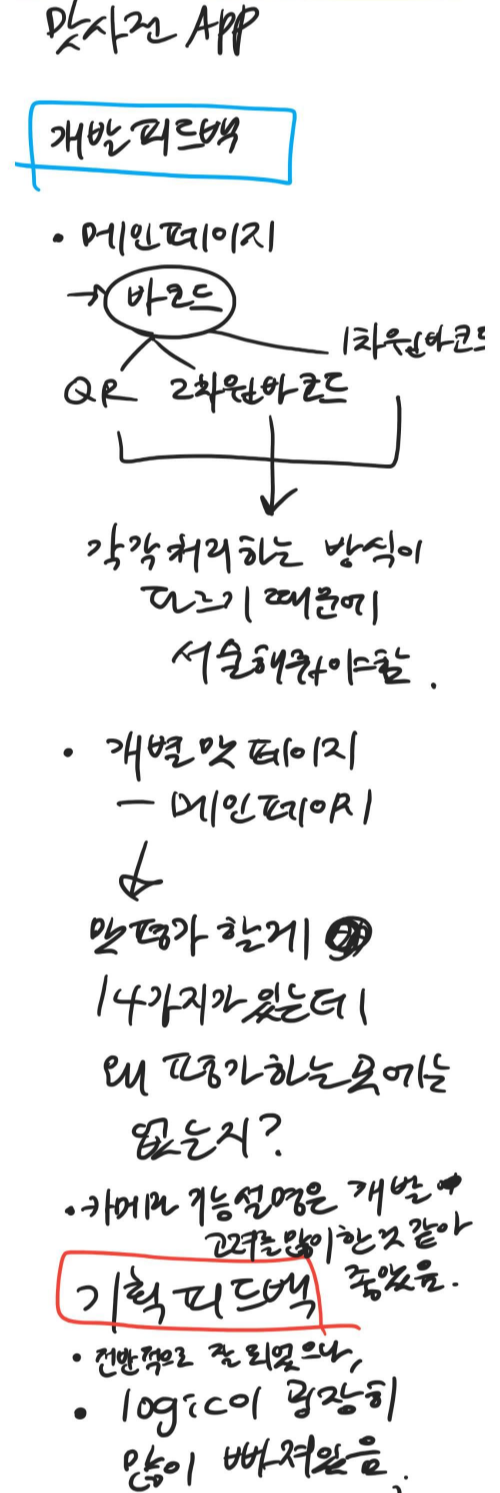 맛사전 APP
개발피드백
• 메인페이지
→ 바코드
1차원바코드
QR 2차원바코드
각각처리하는 방식이
다르기 때문에
서술해줘야함.
• 개별맛페이지
- 메인페이지
맛평가 할게
14가지가 있는데
왜 평가하는곳에는
없는지?
• 카메라 기능설명은 개발
고려를 많이 한것 같아
좋았음.
기획피드백
• 전반적으로 잘 되었으나,
• logic이 굉장히
많이 빠져있음.